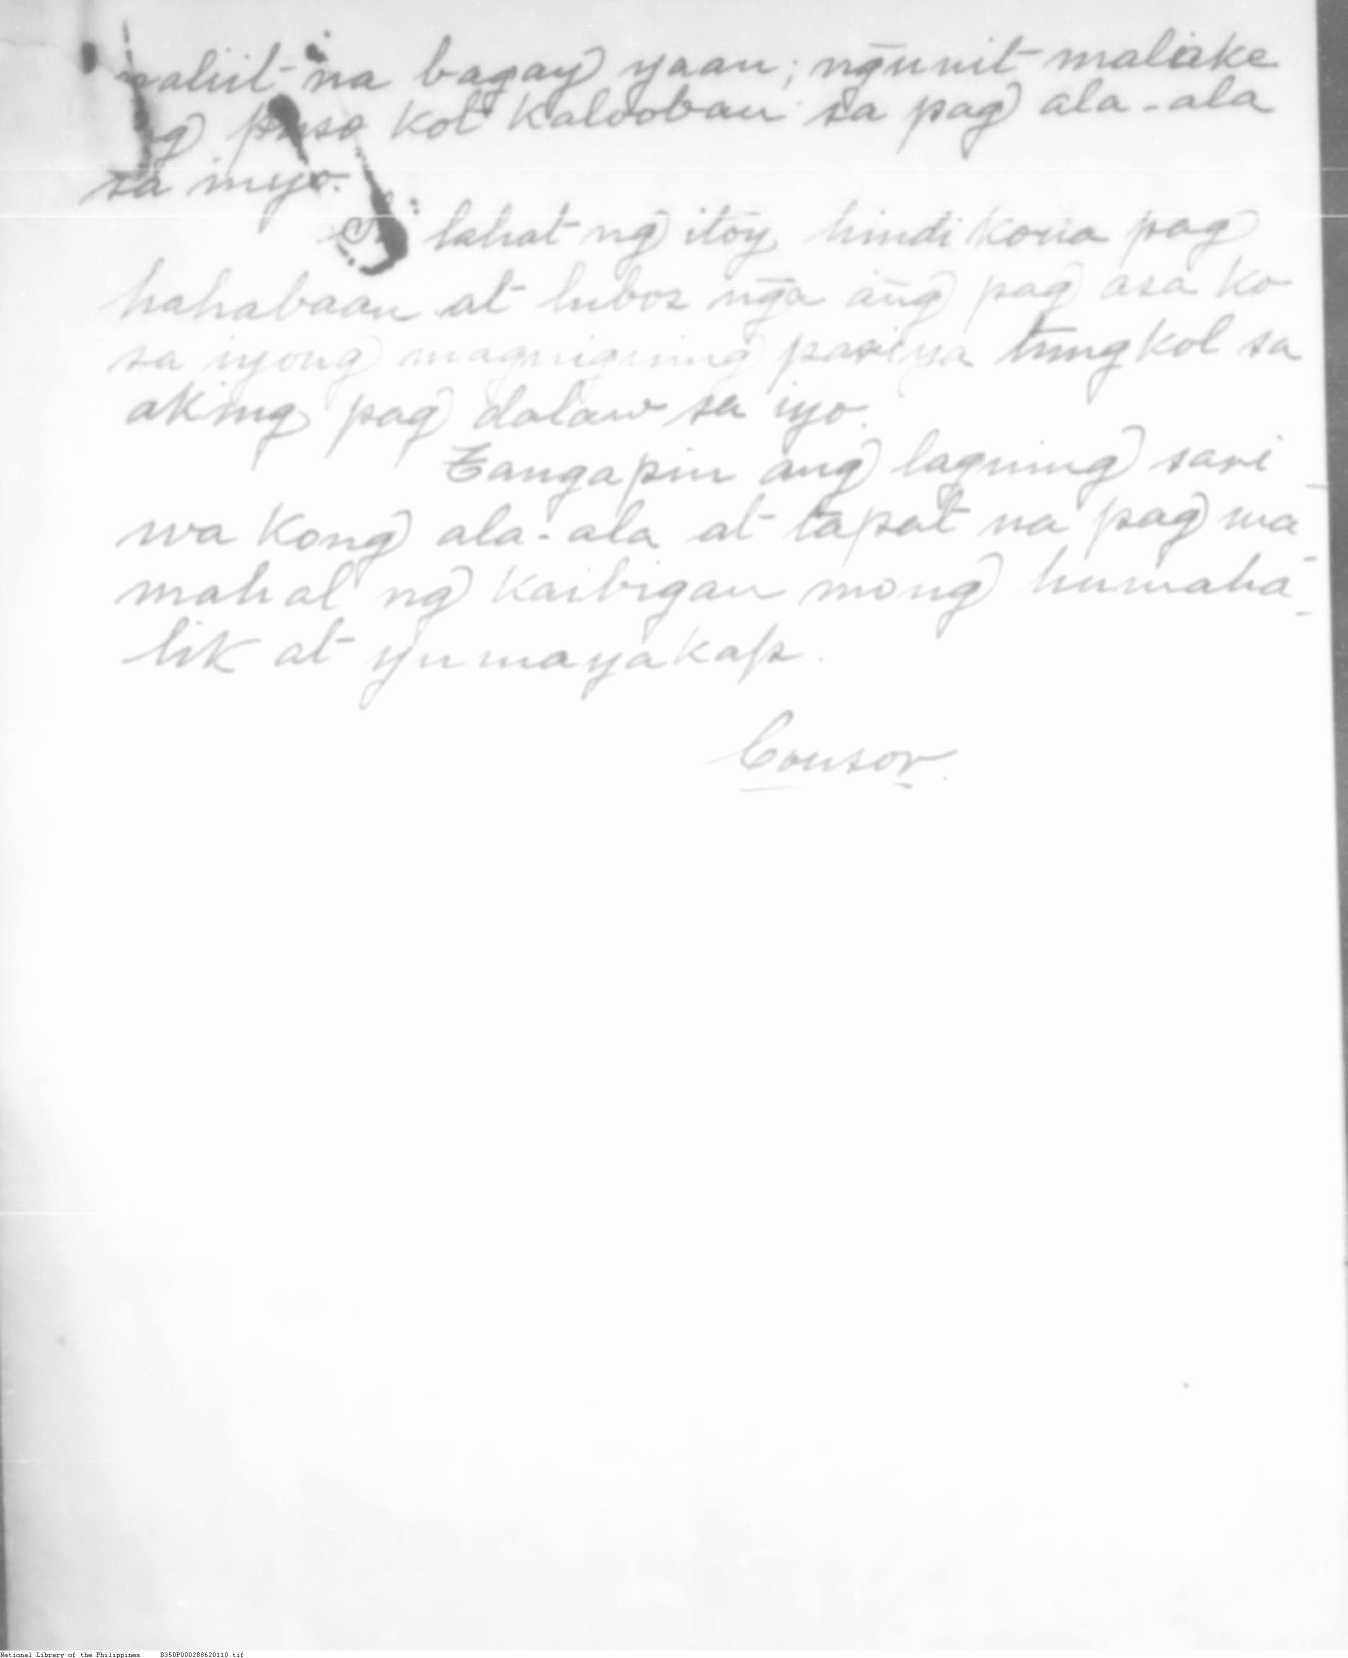 maliit na bagay yaan; ng̃unit malake
ng puso kot kalooban sa pag ala-ala
sa inyo.
Sa lahat ng̃ itoy, hindi kona pag
hahabaan at lubos ng̃a ang̃ pag asa ko
sa iyong magniguing pasiya tungkol sa
aking pag dalaw sa iyo.
Tangapin ang laguing sari
wa kong ala-ala at tapat na pag ma
mahal ng̃ kaibigan mong humaha-
lik at yumayakap.
Consor.
National Library of the Philippines D350P000288620110.tif